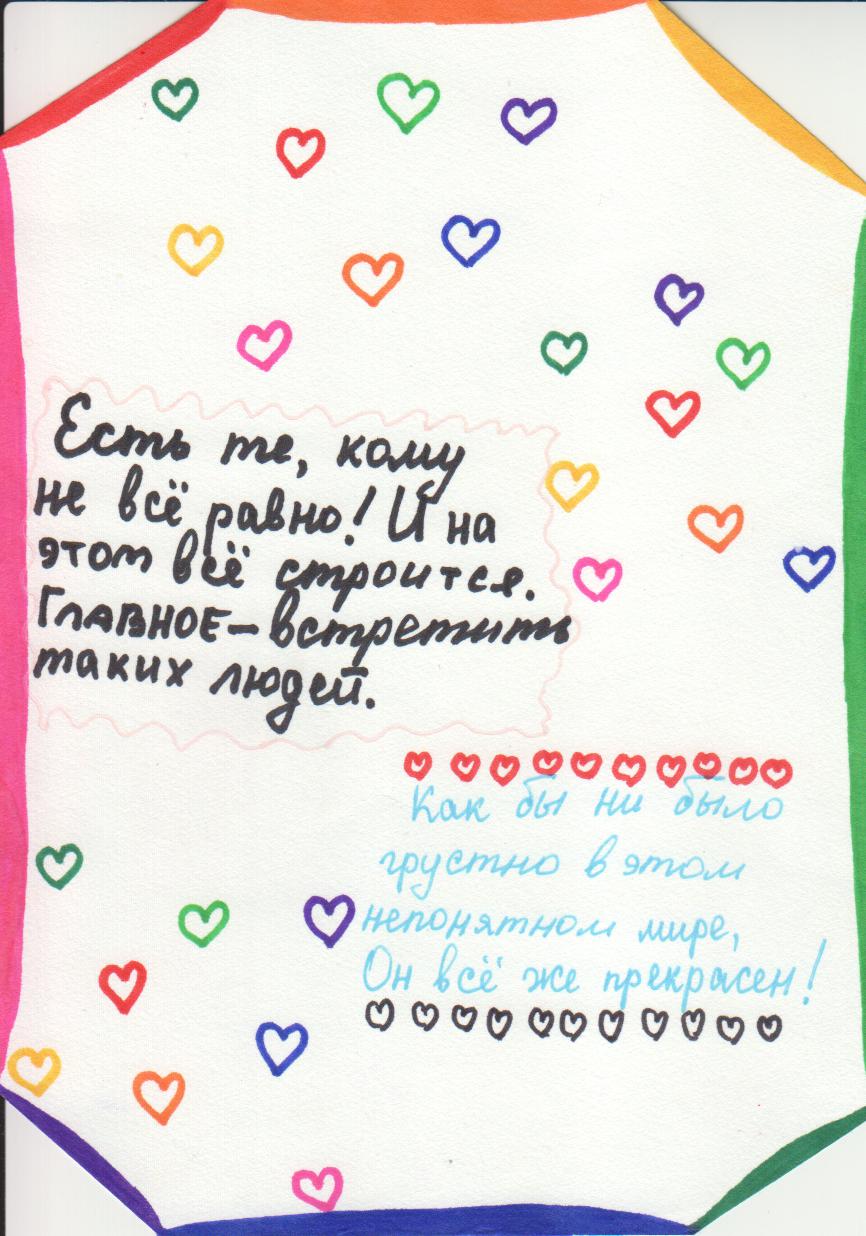 Есть те, кому
не всё равно! И на
этом всё строится.
Главное - встретить
таких людей.
Как бы ни было
грустно в этом
непонятном мире,
Он всё же прекрасен!